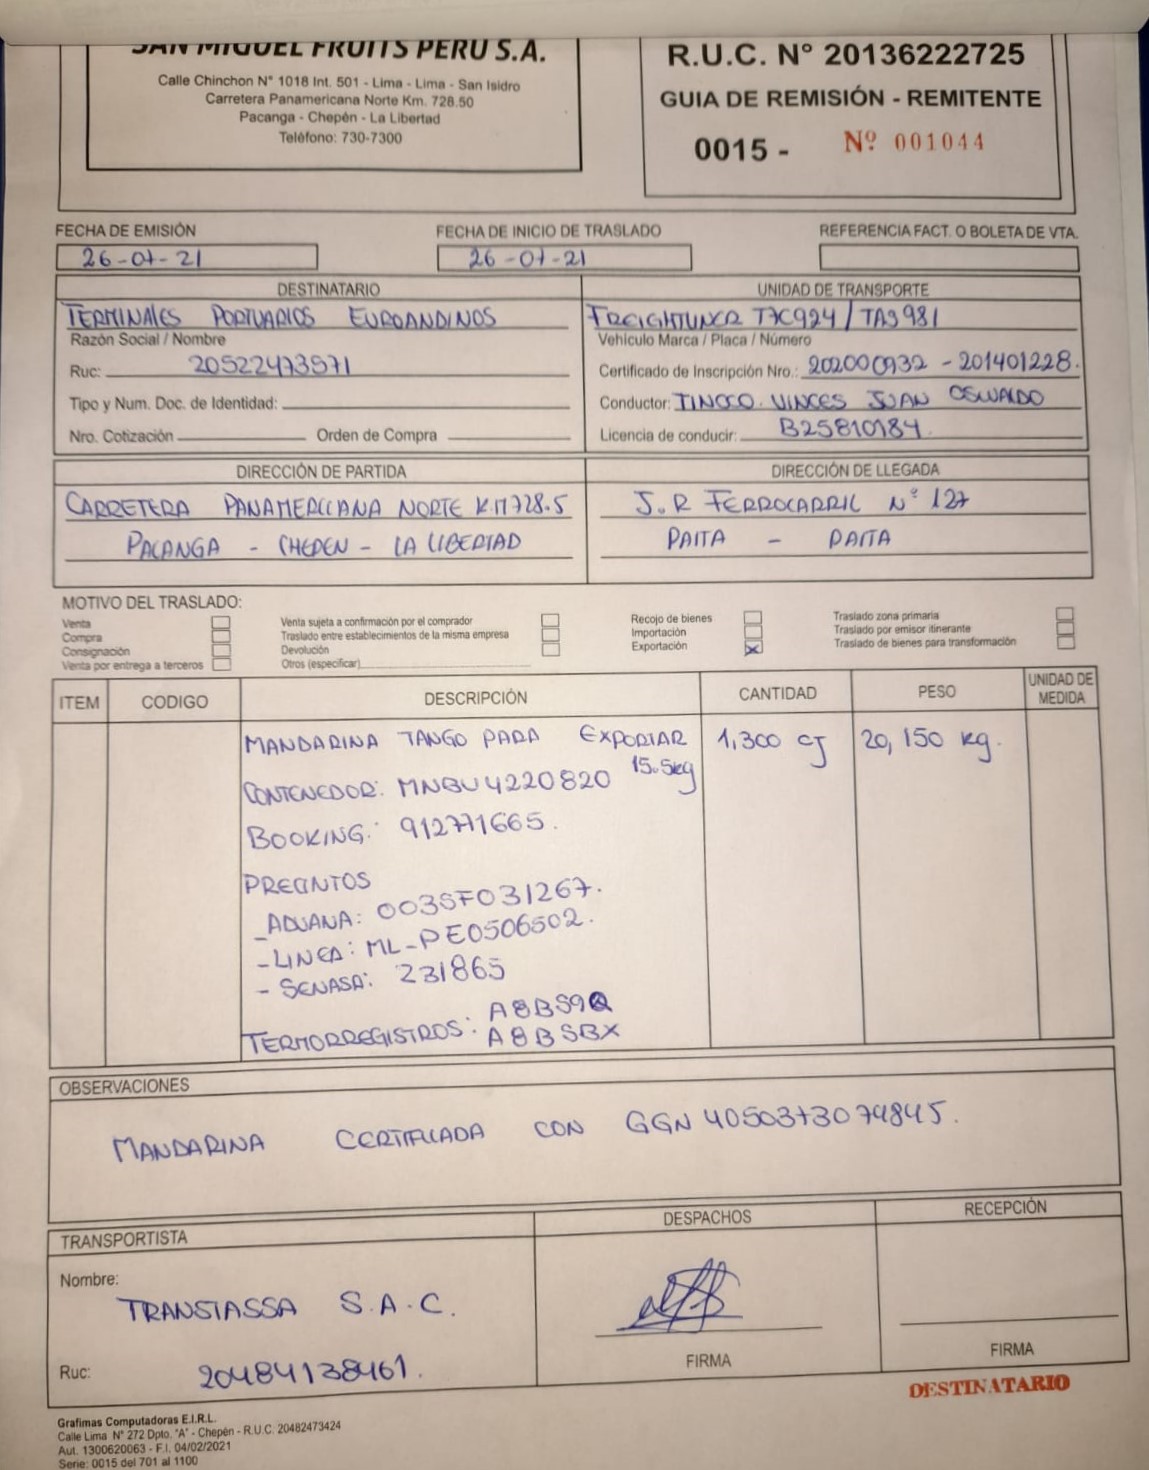 SAN MIGUEL FRUITS PERU S.A.
Calle Chinchon N° 1018 Int. 501 - Lima - Lima - San Isidro
Carretera Panamericana Norte Km. 728.50
Pacanga - Chepén - La Libertad
Teléfono: 730-7300
R.U.C. N° 20136222725
GUIA DE REMISIÓN - REMITENTE
0015 - Nº 001044
FECHA DE EMISIÓN
26-07-21
FECHA DE INICIO DE TRASLADO
26-07-21
REFERENCIA FACT. O BOLETA DE VTA.
DESTINATARIO
TERMINALES PORTUARIOS EUROANDINOS
Razón Social / Nombre
Ruc: 20522473571
Tipo y Num. Doc. de Identidad:
Nro. Cotización Orden de Compra
UNIDAD DE TRANSPORTE
FREIGHTLINER T7C924 / TAS981
Vehículo Marca / Placa / Número
Certificado de Inscripción Nro.: 202000932 - 201401228.
Conductor: TINOCO VINCES JUAN OSWALDO
Licencia de conducir: B25810184.
DIRECCIÓN DE PARTIDA
CARRETERA PANAMERICANA NORTE K.M 728.5
PACANGA - CHEPEN - LA LIBERTAD
DIRECCIÓN DE LLEGADA
J.R FERROCARRIL N° 127
PAITA - PAITA
MOTIVO DEL TRASLADO:
Venta
Compra
Consignación
Venta por entrega a terceros
Venta sujeta a confirmación por el comprador
Traslado entre establecimientos de la misma empresa
Devolución
Otros (especificar)
Recojo de bienes
Importación
Exportación X
Traslado zona primaria
Traslado por emisor itinerante
Traslado de bienes para transformación
ITEM CODIGO DESCRIPCIÓN CANTIDAD PESO UNIDAD DE MEDIDA
MANDARINA TANGO PARA EXPORTAR 1,300 CJ 20,150 kg.
15.5kg
CONTENEDOR: MNBU4220820
BOOKING: 912771665.
PRECINTOS
- ADUANA: 003SF031267.
- LINEA: ML-PE0506502.
- SENASA: 231865
TERMORREGISTROS: A8BS9Q
A8BSBX
OBSERVACIONES
MANDARINA CERTIFICADA CON GGN 4050373079845.
TRANSPORTISTA
Nombre:
TRANSTASSA S.A.C.
Ruc: 20484138461.
DESPACHOS
FIRMA
RECEPCIÓN
FIRMA
DESTINATARIO
Grafimas Computadoras E.I.R.L.
Calle Lima N° 272 Dpto. "A" - Chepén - R.U.C. 20482473424
Aut. 1300620063 - F.I. 04/02/2021
Serie: 0015 del 701 al 1100